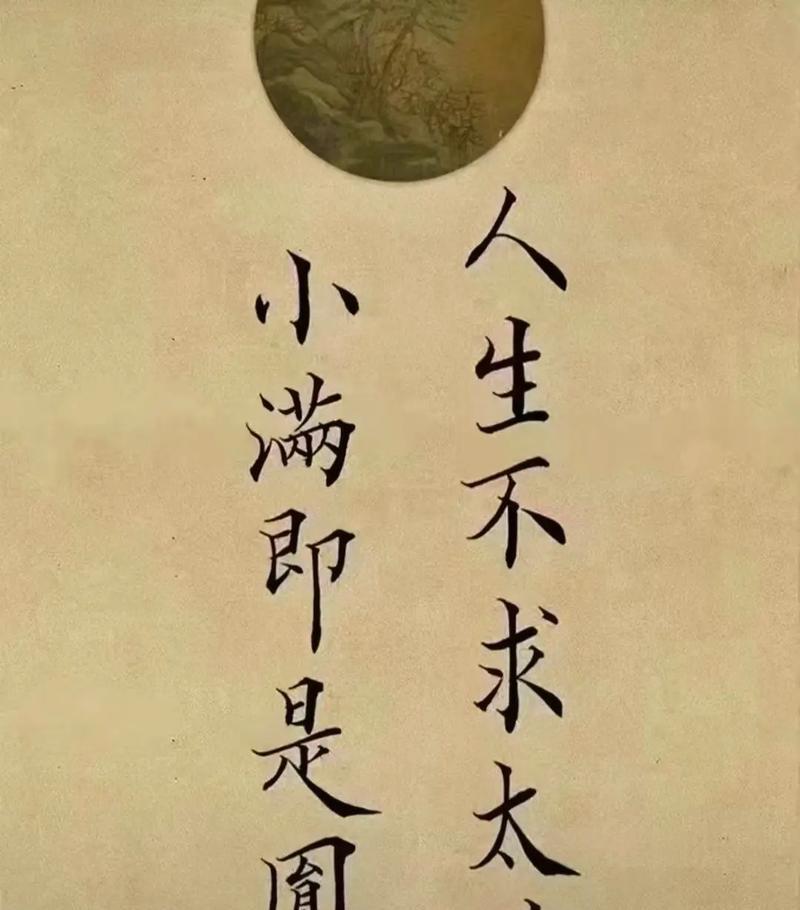 人生不求太
小滿即是圓